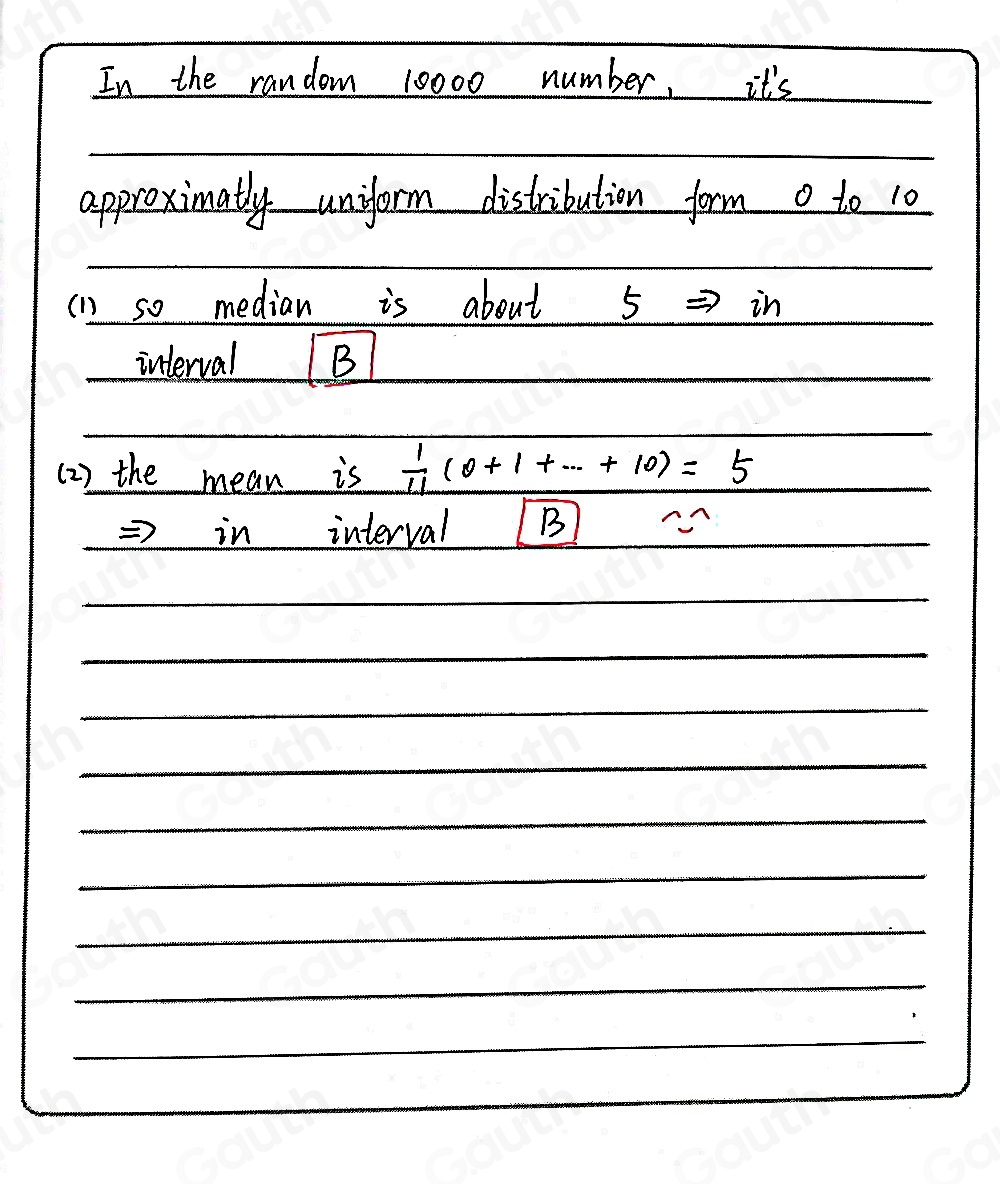 In the random 10000 number, it's
approximatly uniform distribution form 0 to 10
(1) so median is about 5 ⇒ in
interval B
(2) the mean is 1/11 (0+1+...+10) = 5
⇒ in interval B